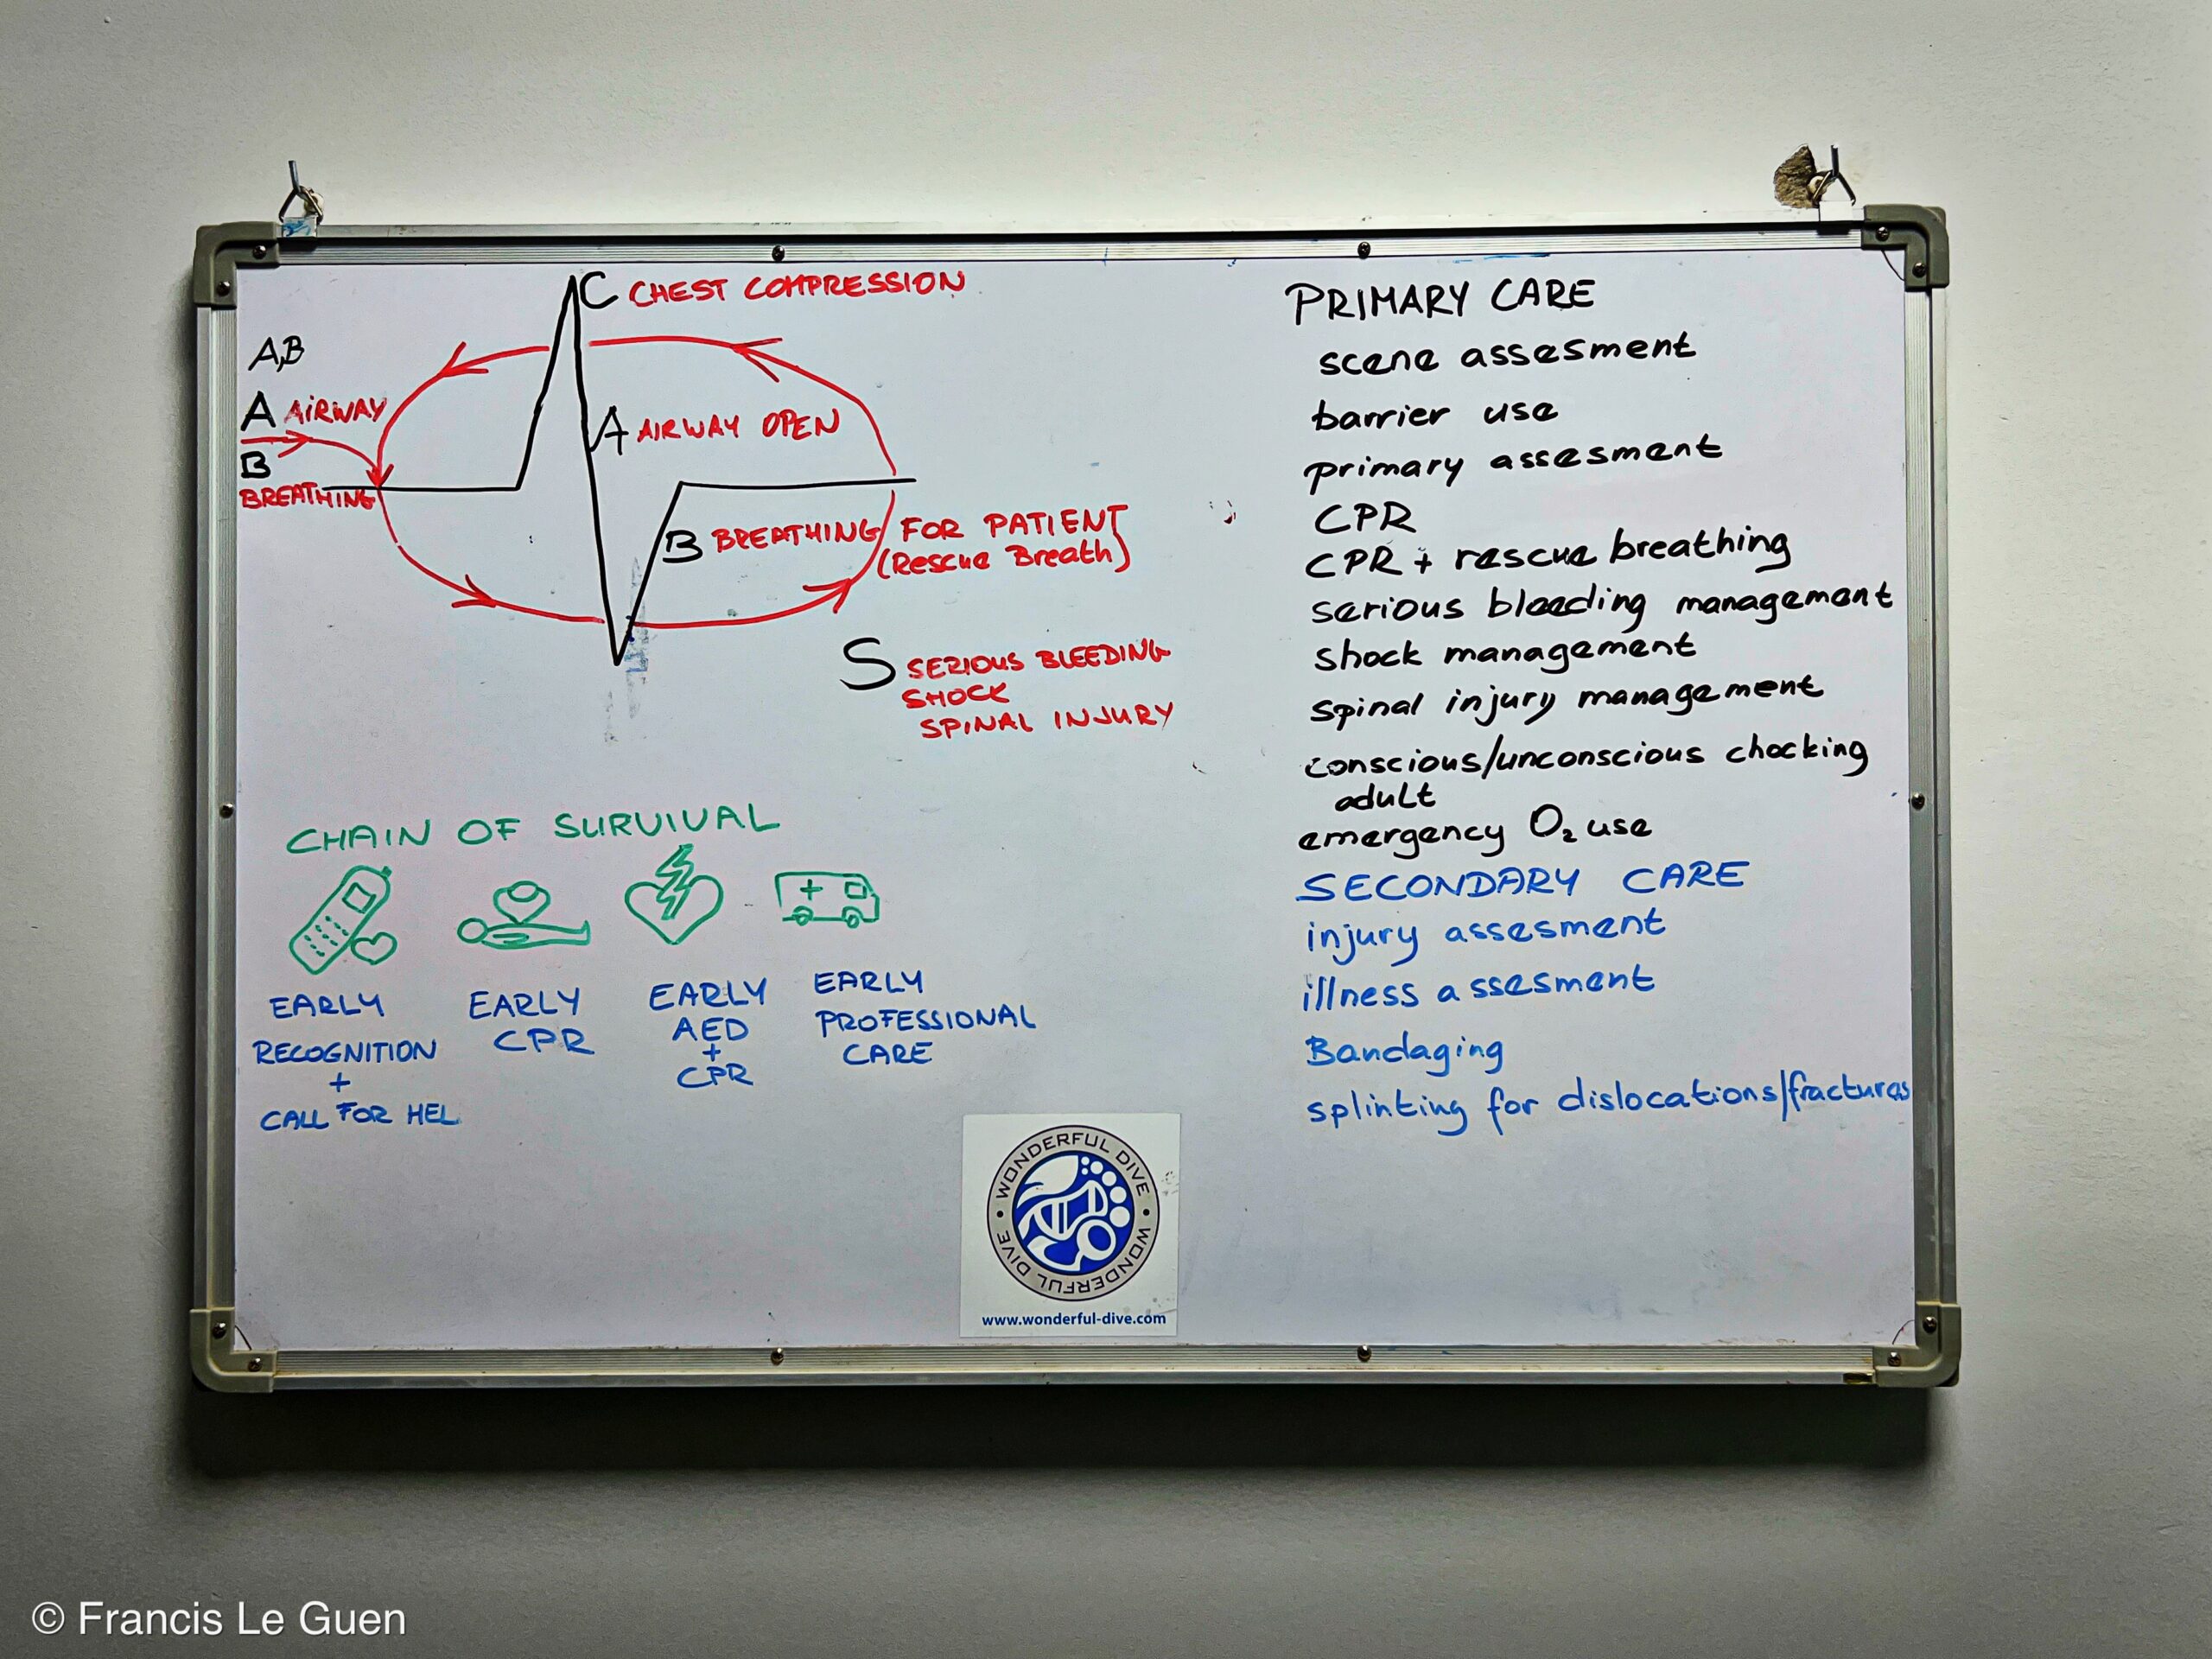 C CHEST COMPRESSION
A,B
A AIRWAY
B
BREATHING
A AIRWAY OPEN
B BREATHING FOR PATIENT
(Rescue Breath)
S SERIOUS BLEEDING
SHOCK
SPINAL INJURY
CHAIN OF SURVIVAL
EARLY
RECOGNITION
+
CALL FOR HEL
EARLY
CPR
EARLY
AED
+
CPR
EARLY
PROFESSIONAL
CARE
PRIMARY CARE
scene assesment
barrier use
primary assesment
CPR
CPR + rescue breathing
serious bleeding management
shock management
spinal injury management
conscious/unconscious chocking
adult
emergency O₂ use
SECONDARY CARE
injury assesment
illness assesment
Bandaging
splinting for dislocations/fractures
WONDERFUL DIVE • WONDERFUL DIVE •
www.wonderful-dive.com
© Francis Le Guen